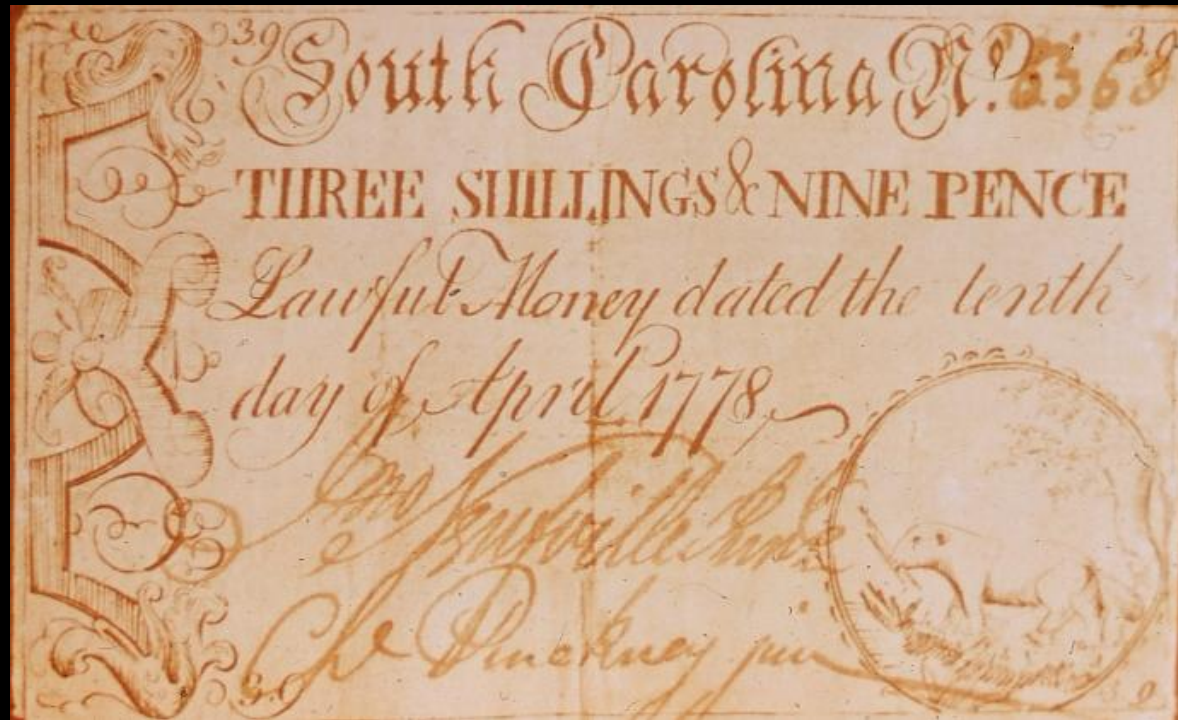 39 South Carolina No. 6368 39
THREE SHILLINGS & NINE PENCE
Lawful Money dated the tenth
day of April 1778
Jno
Chs Pinckney jun
3.9 3.9